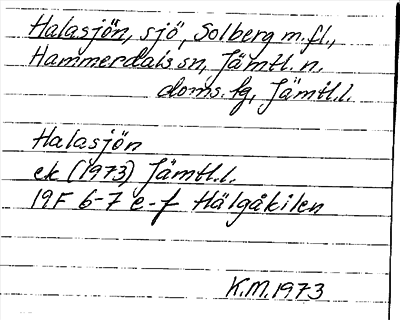 Halasjön, sjö, Solberg m.fl.,
Hammerdals sn, Jämtl. n.
doms.hg, Jämtl.l.
Halasjön
ek (1973) Jämtl.l.
19F 6-7 e-f Hälgåkilen
K.M. 1973